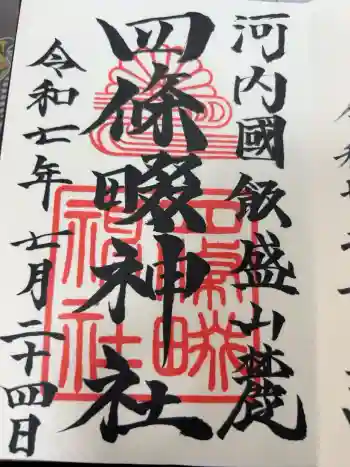 河内國飯盛山麓
四條畷神社
令和七年七月二十四日